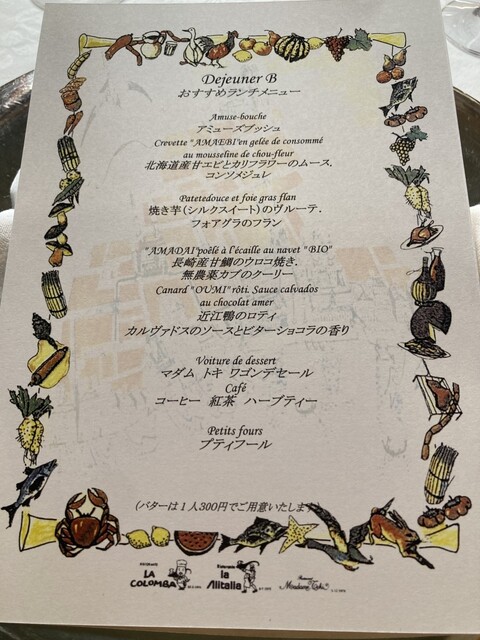 Dejeuner B
おすすめランチメニュー
Amuse-bouche
アミューズブッシュ
Crevette "AMAEBI"en gelée de consommé
au mousseline de chou-fleur
北海道産甘エビとカリフラワーのムース．
コンソメジュレ
Patetedouce et foie gras flan
焼き芋（シルクスイート）のヴルーテ．
フォアグラのフラン
"AMADAI"poêlé à l'écaille au navet "BIO"
長崎産甘鯛のウロコ焼き．
無農薬カブのクーリー
Canard "OUMI" rôti. Sauce calvados
au chocolat amer
近江鴨のロティ
カルヴァドスのソースとビターショコラの香り
Voiture de dessert
マダム トキ ワゴンデセール
Café
コーヒー 紅茶 ハーブティー
Petits fours
プティフール
（バターは１人300円でご用意いたします）
LA COLOMBA
la Alitalia
Madame Toki